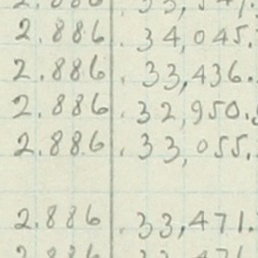 2.886 . 34,045.
2.886 . 33,436.
2.886 . 32,950.
2.886 . 33,055.
2.886 . 33,471.